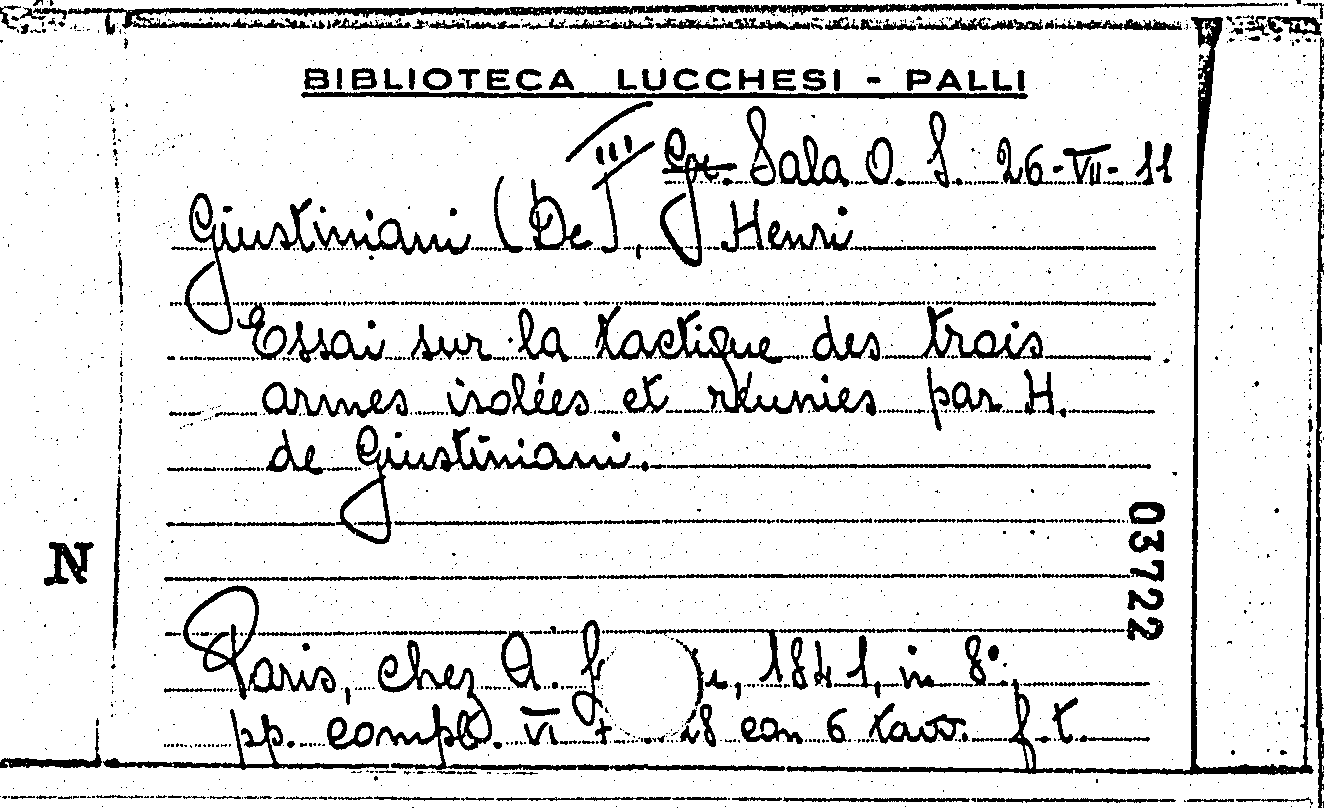 BIBLIOTECA LUCCHESI - PALLI
III Gr. Sala O. S. 26-VII-11
Giustiniani (De), Henri
Essai sur la tactique des trois
armes isolées et réunies par H.
de Giustiniani.
03722
N
Paris, chez A. 1841, in 8°.,
pp. compl. VI + 28 con 6 tavv. f.t.